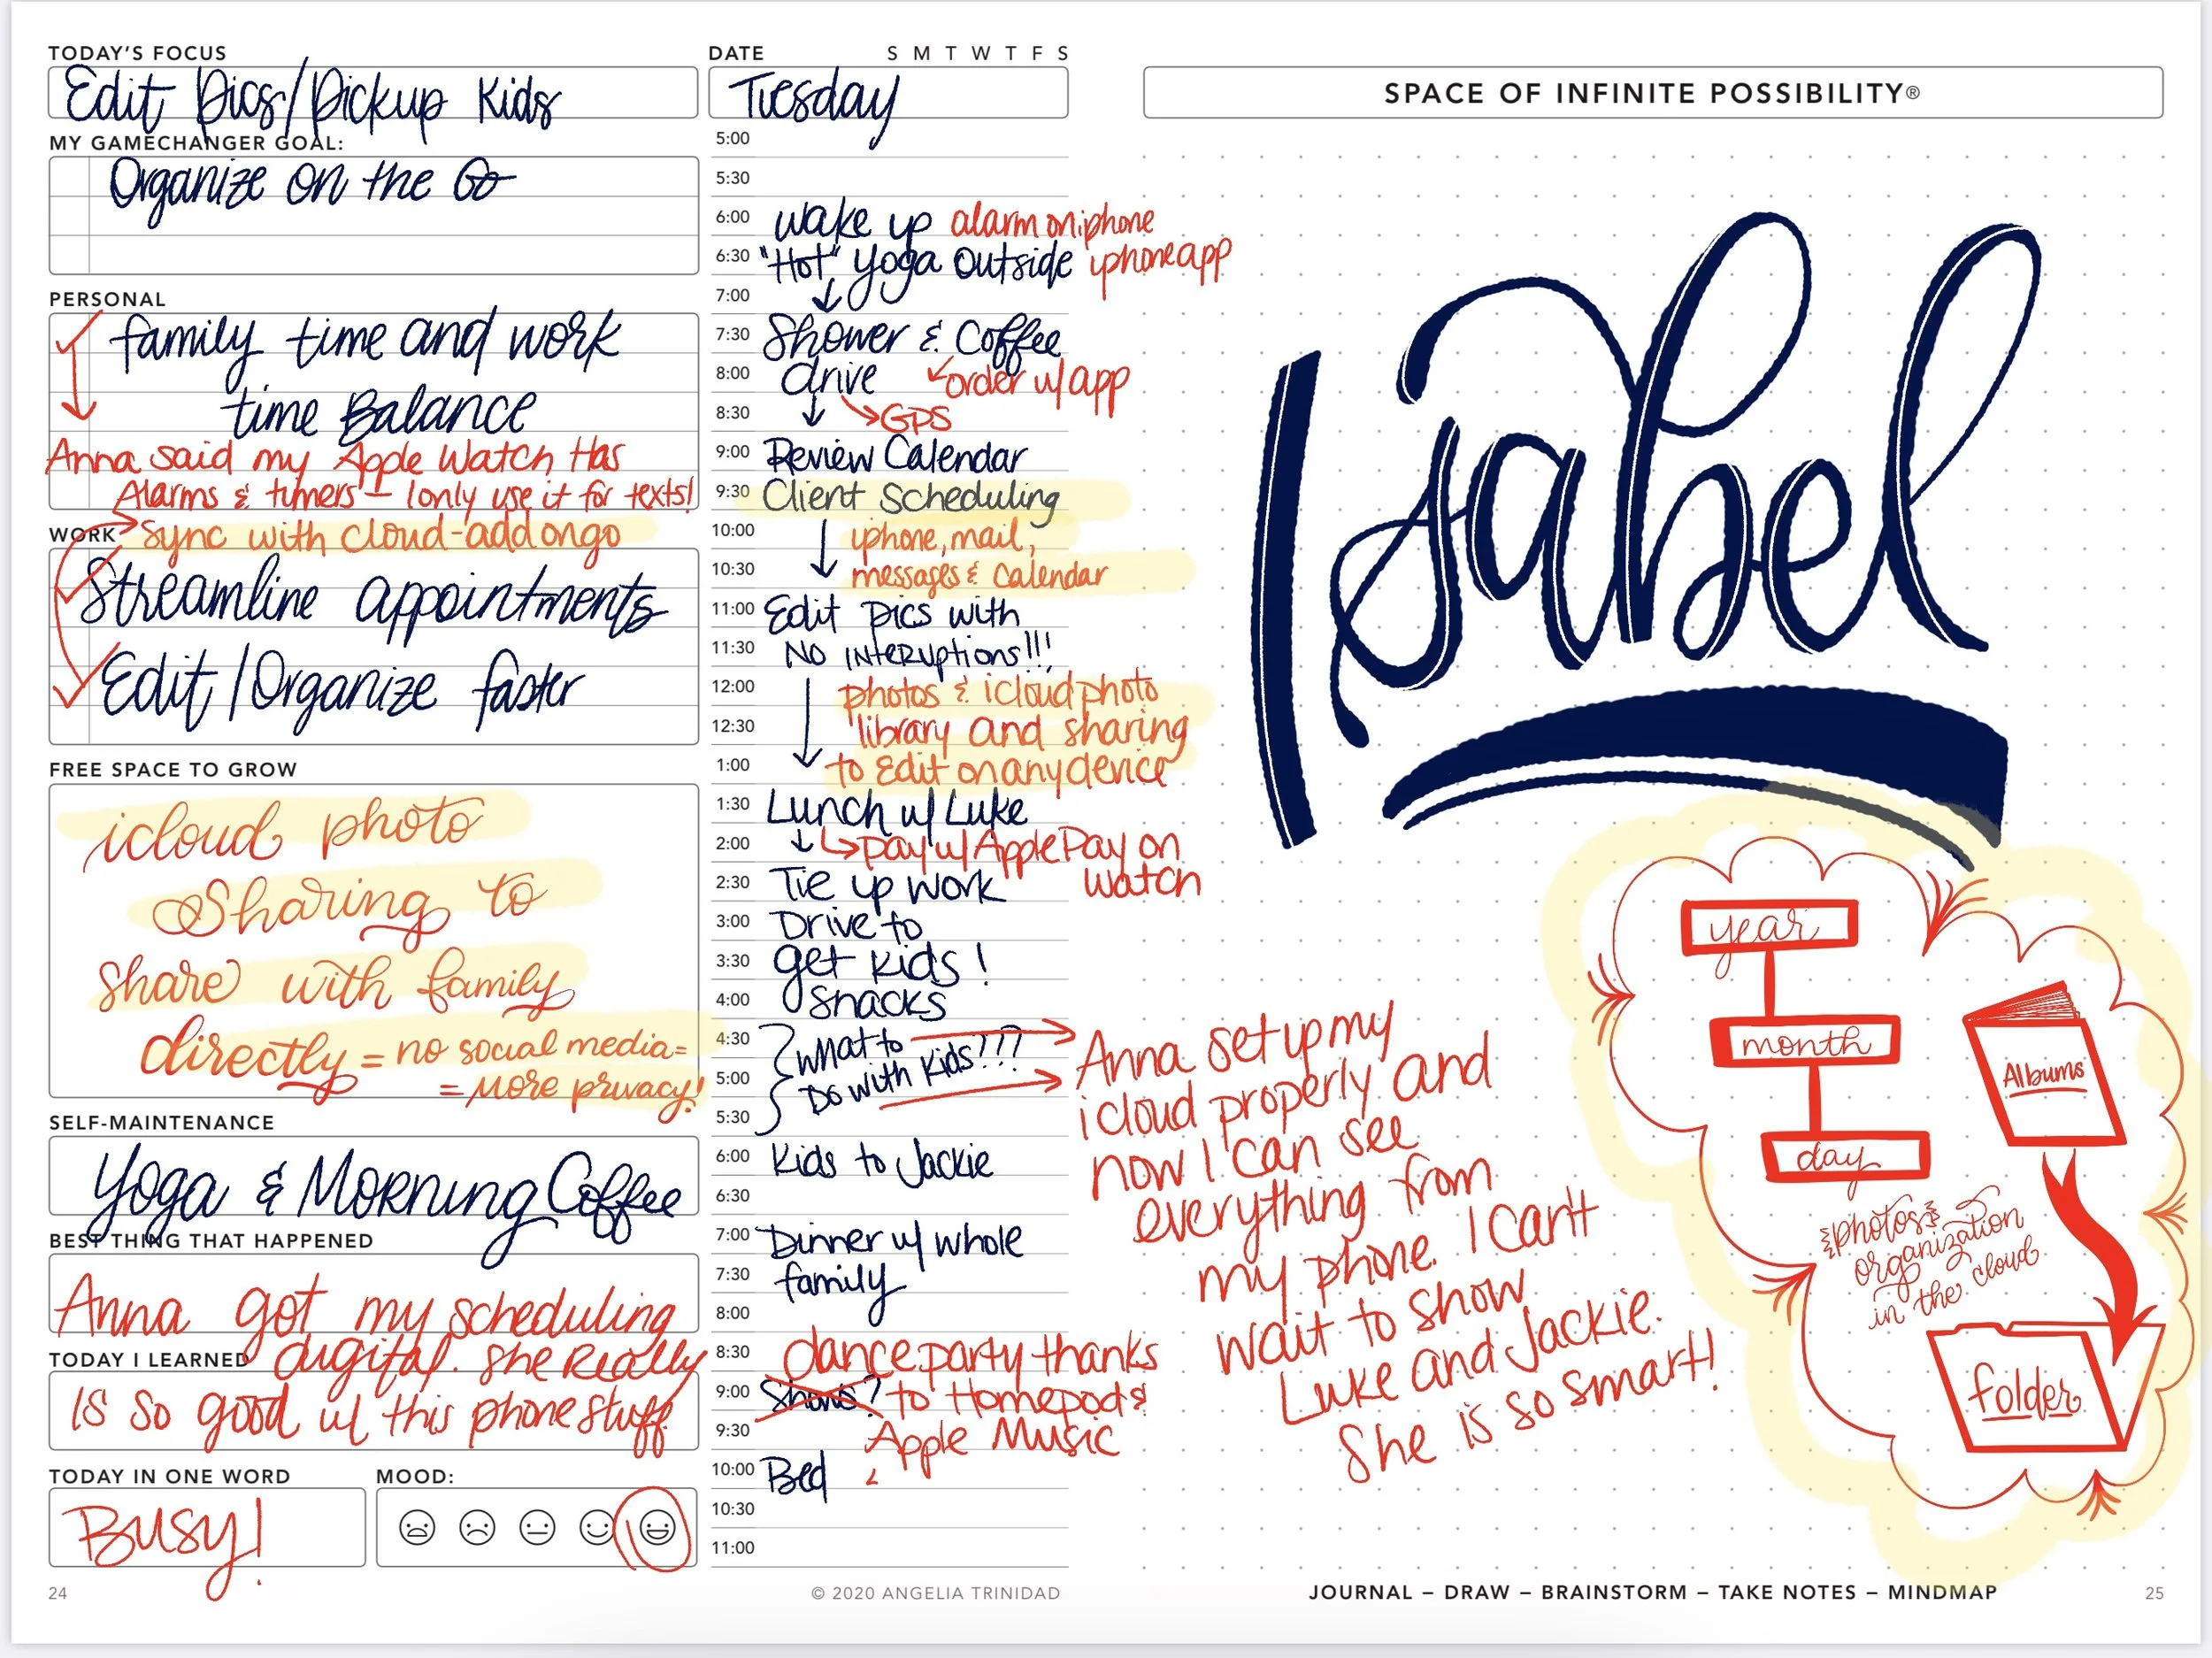 TODAY'S FOCUS
Edit Pics/Pickup Kids
MY GAMECHANGER GOAL:
Organize on the Go
PERSONAL
family time and work
time Balance
Anna said my Apple Watch Has
Alarms & timers — I only use it for texts!
WORK
Sync with cloud-add on go
Streamline appointments
Edit/Organize faster
FREE SPACE TO GROW
icloud photo
Sharing to
share with family
directly = no social media =
= More privacy!
SELF-MAINTENANCE
Yoga & Morning Coffee
BEST THING THAT HAPPENED
Anna got my scheduling
digital. She Really
TODAY I LEARNED
is so good w/ this phone stuff
TODAY IN ONE WORD
Busy!
MOOD:
24
DATE
S M T W T F S
Tuesday
5:00
5:30
6:00 wake up alarm on iphone
6:30 "Hot" yoga outside iphone app
7:00
7:30 Shower & Coffee
8:00 drive order w/ app
8:30 GPS
9:00 Review Calendar
9:30 Client Scheduling
10:00 iphone, mail,
10:30 messages & Calendar
11:00 Edit pics with
11:30 NO INTERUPTIONS!!!
12:00 photos & icloud photo
12:30 library and sharing
1:00 to Edit on any device
1:30 Lunch w/ Luke
2:00 pay w/ Apple Pay on
watch
2:30 Tie up work
3:00 Drive to
3:30 get kids!
4:00 snacks
4:30 What to
5:00 Do with kids???
5:30
6:00 Kids to Jackie
6:30
7:00 Dinner w/ whole
7:30 family
8:00
8:30 dance party thanks
9:00 Shows? to Homepod &
9:30 Apple Music
10:00 Bed
10:30
11:00
© 2020 ANGELIA TRINIDAD
SPACE OF INFINITE POSSIBILITY®
Isabel
Anna set up my
icloud properly and
now I can see
everything from
my phone. I can't
wait to show
Luke and Jackie.
She is so smart!
year
month
day
Albums
photos &
organization
in the cloud
folder
JOURNAL – DRAW – BRAINSTORM – TAKE NOTES – MINDMAP
25